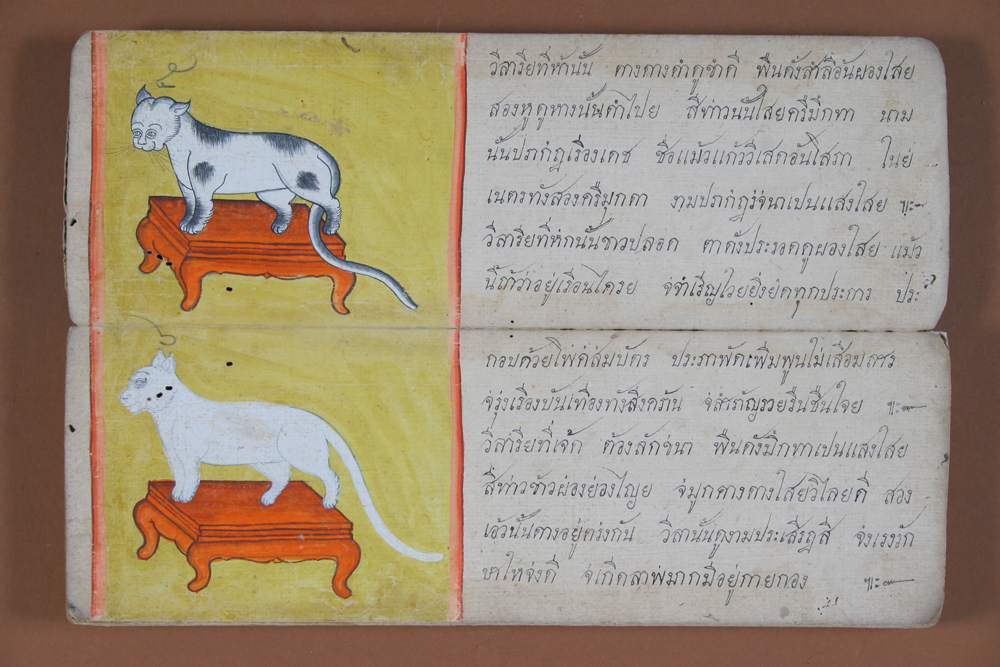 ๕
วีสารียที่ห้านั้น คางคางคำดูขำคี พื้นคังสำลีอันผองใสย
สองหูดูหางนั้นคำไปย สี่ท่าวนั้นใสยครืมึกทา นาม
นั้นปรากํฎเรืองเดช ชื่อแม้วแก้ววิเสดอันโสภา ในย่
เนตรทังสองครืมุกดา งามปรากํฎรํจ่นาเปนแสงใสย ฯะ๛
วีสารียที่หํกนั้นขาวปลอด ตาคังประรอดดูผองใสย แม้ว
นี้ถ้าว่าอยู่เรือนใครย จ่จำเรีญไวยยิ่งย่ดทุกประการ ประ
กอบด้วยโพค่สํมบัตร ประภาพัดเพิ่มพูนไม่เสือม
จ่รุ่งเรืองบันเทืองทังสิงคราน ชืนใจย ฯะ๛
วีสารียที่เจ้ด ต้องลักข่นา พื้นคังมึกทาเปนแสงใสย
สี่ท่าวข้าวผ่องย่องไญย จ่มูกคางคางใสยวิไลยดี สอง
เอ้วนั้นคางอยู่ตร่งกัน วีสานั้นดูงามประเสีรฎสี จ่งเรงรัก
ษาให้จ่งดี จ่เกีดลาพ่มากมีอยู่กายกอง ฯะ๛